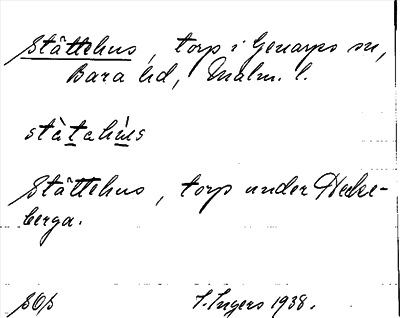 Ståttehus, torp i Genarps sn,
Bara hd, Malm. l.
ståtahus
Ståttehus, torp under Häcke-
berga.
SOS I. Ingers 1938.